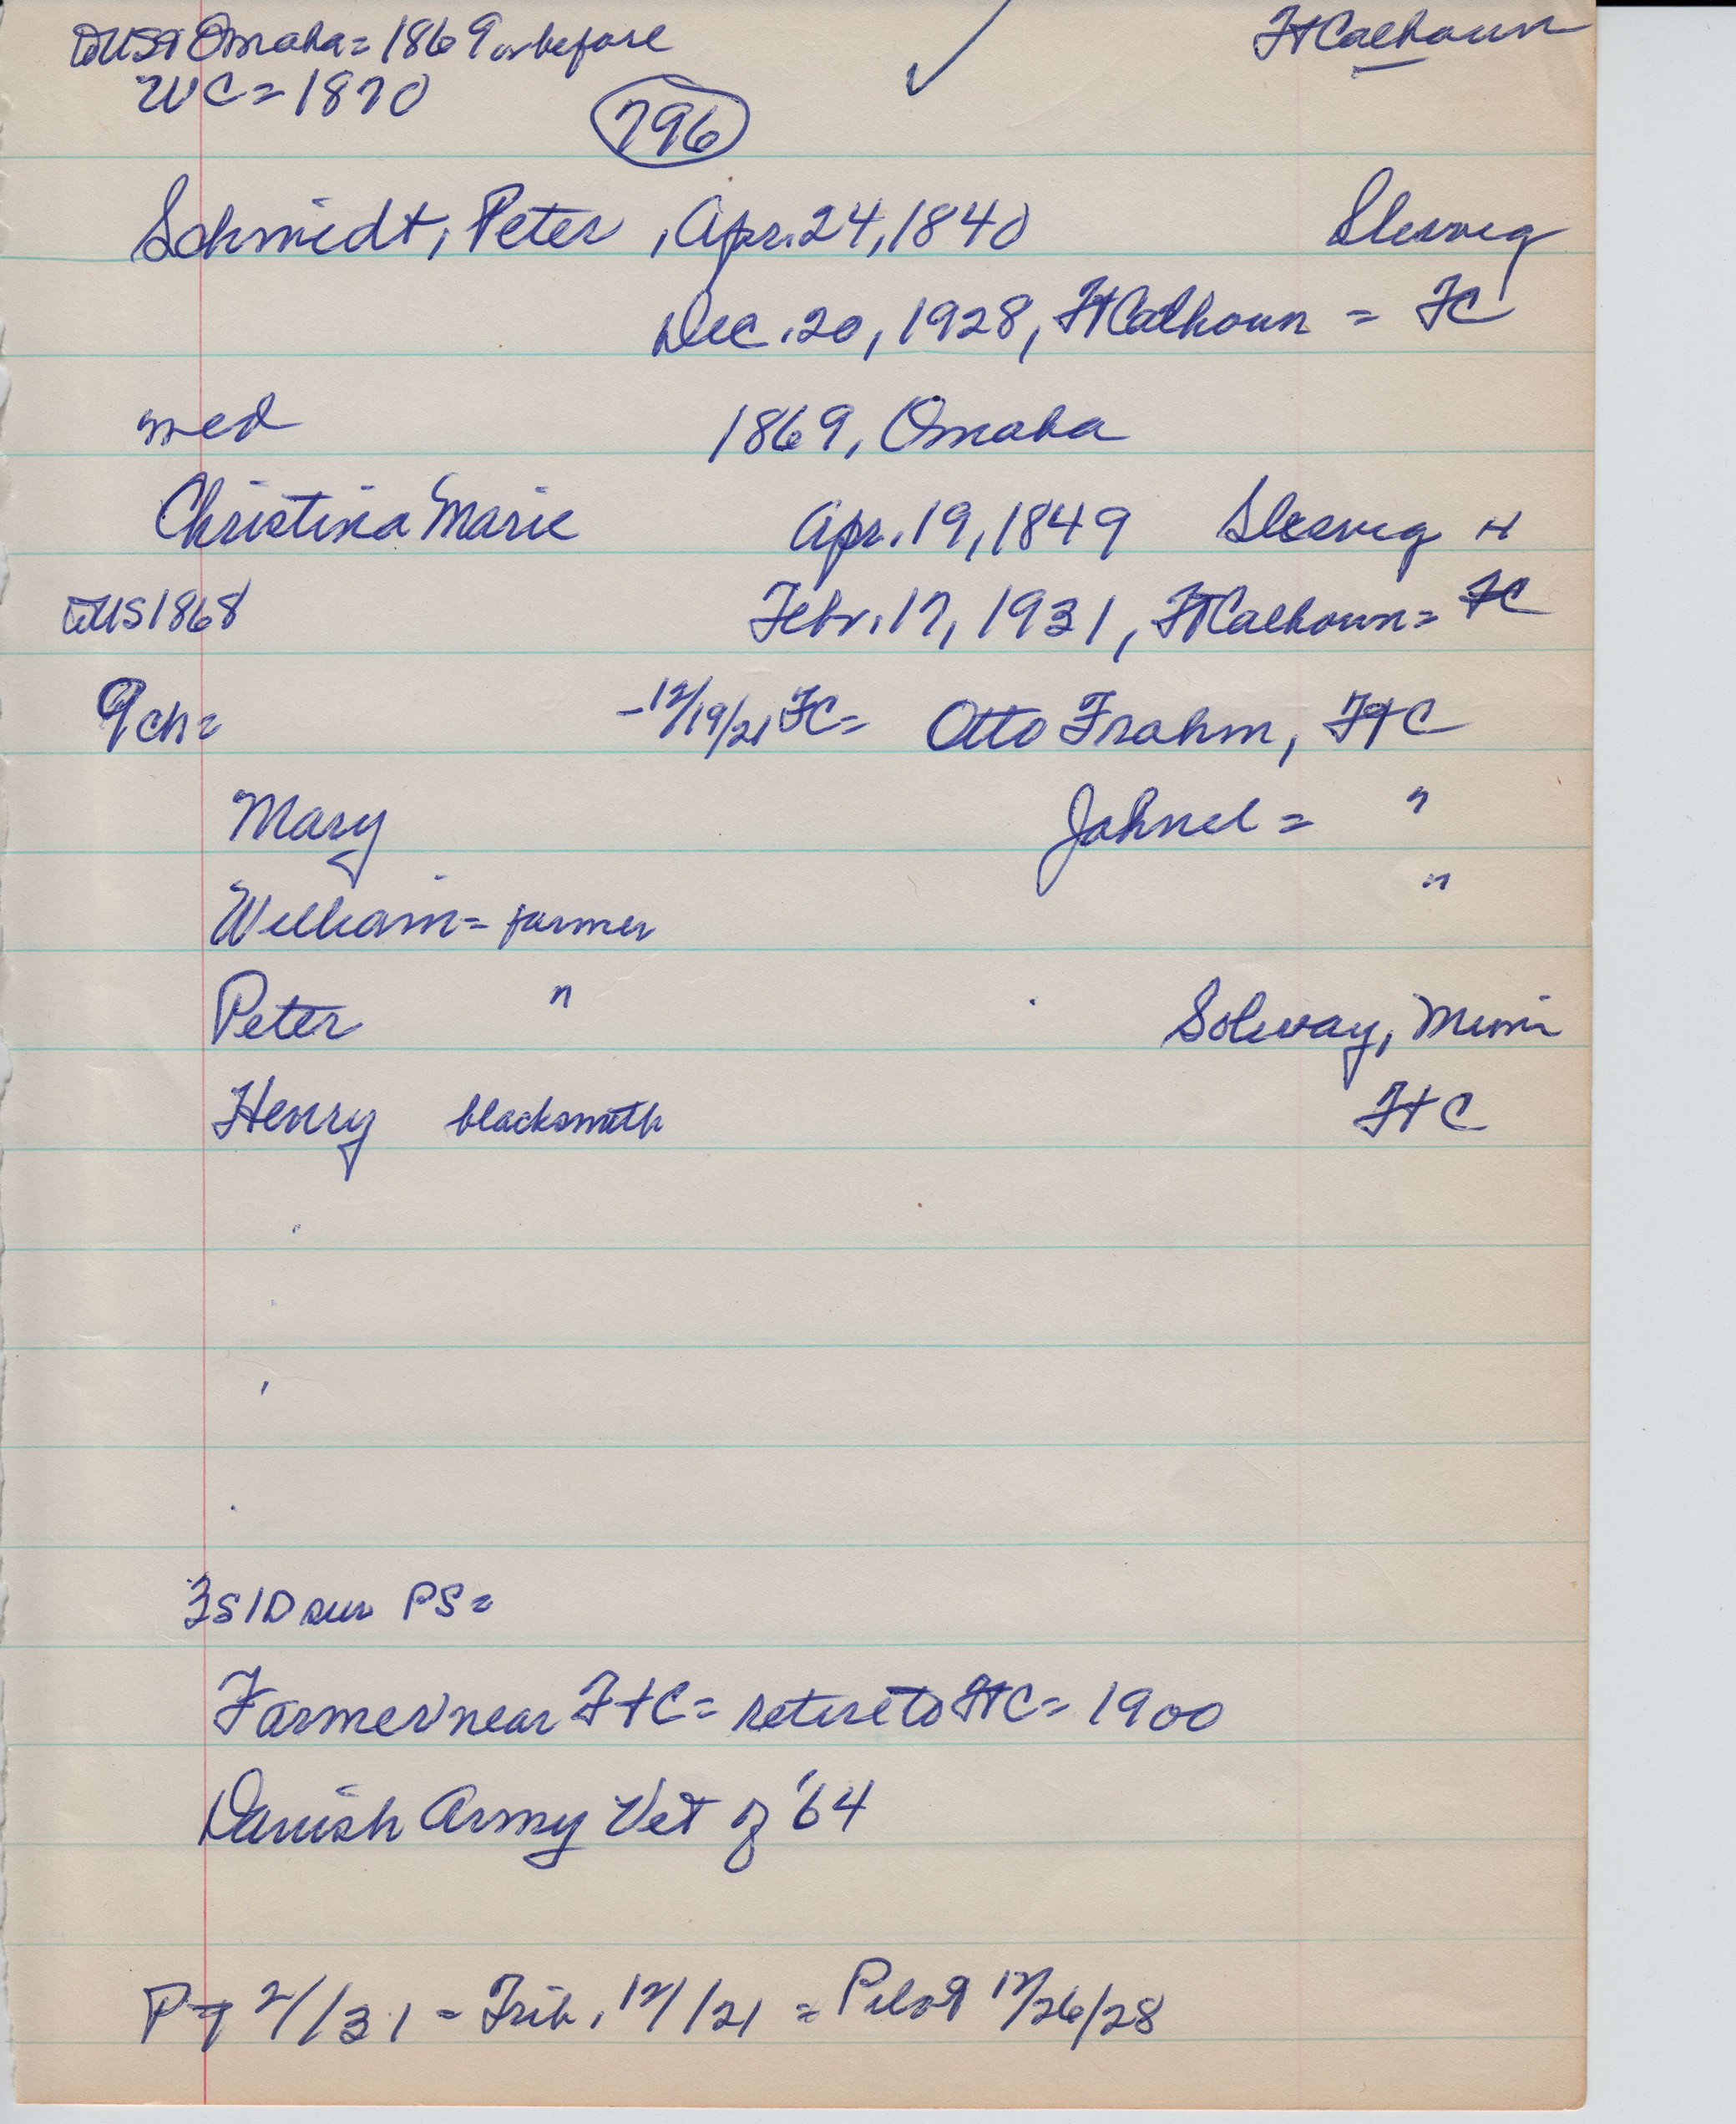 toUS & Omaha = 1869 or before    Ft Calhoun
WC = 1870
796
Schmidt, Peter , Apr. 24, 1840    Slesvig
Dec. 20, 1928, Ft Calhoun = FC
med    1869, Omaha
Christina Marie    Apr. 19, 1849    Slesvig "
toUS 1868    Febr. 17, 1931, Ft Calhoun = FC
9 ch =    - 12/19/21 FC =    Otto Frahm, FtC
Mary    Jahnel =    "
William = farmer    "
Peter    "    Solway, Minn
Henry    blacksmith    FtC
3S 1D sur PS =
Farmer near FtC = retire to FtC = 1900
Danish Army Vet of '64
P-T 2/ /31 = Trib. 12/ /21 = Pilot 12/26/28